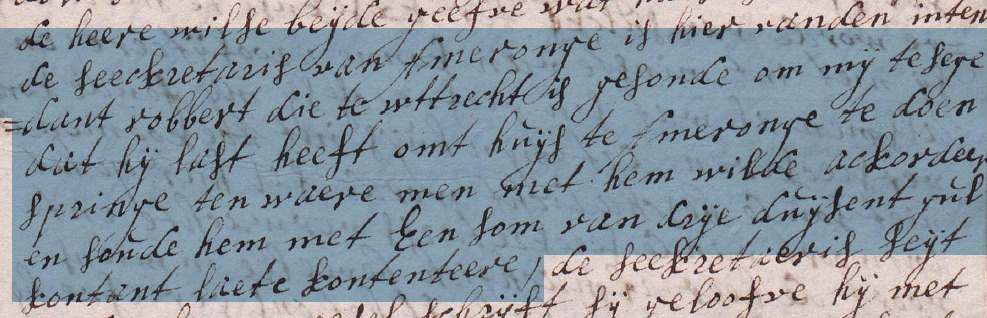 de heere wilse beijde geefve wat
de seeckretaris van Ameronge is hier vanden inten
=dant robbert die te wttrecht is gesonde om mij te sege
dat hij last heeft omt huijs te Ameronge te doen
springe ten waere men met hem wilde ackordeere
en sonde hem met Een som van drije duijsent gul
kontant laete kontenteere, de seekretaeris seijt
schrijft hij geloofve hij met